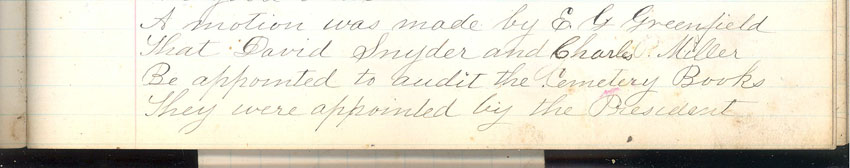 A motion was made by E G Greenfield
That David Snyder and Charls Miller
Be appointed to audit the Cemetery Books
They were appointed by the President